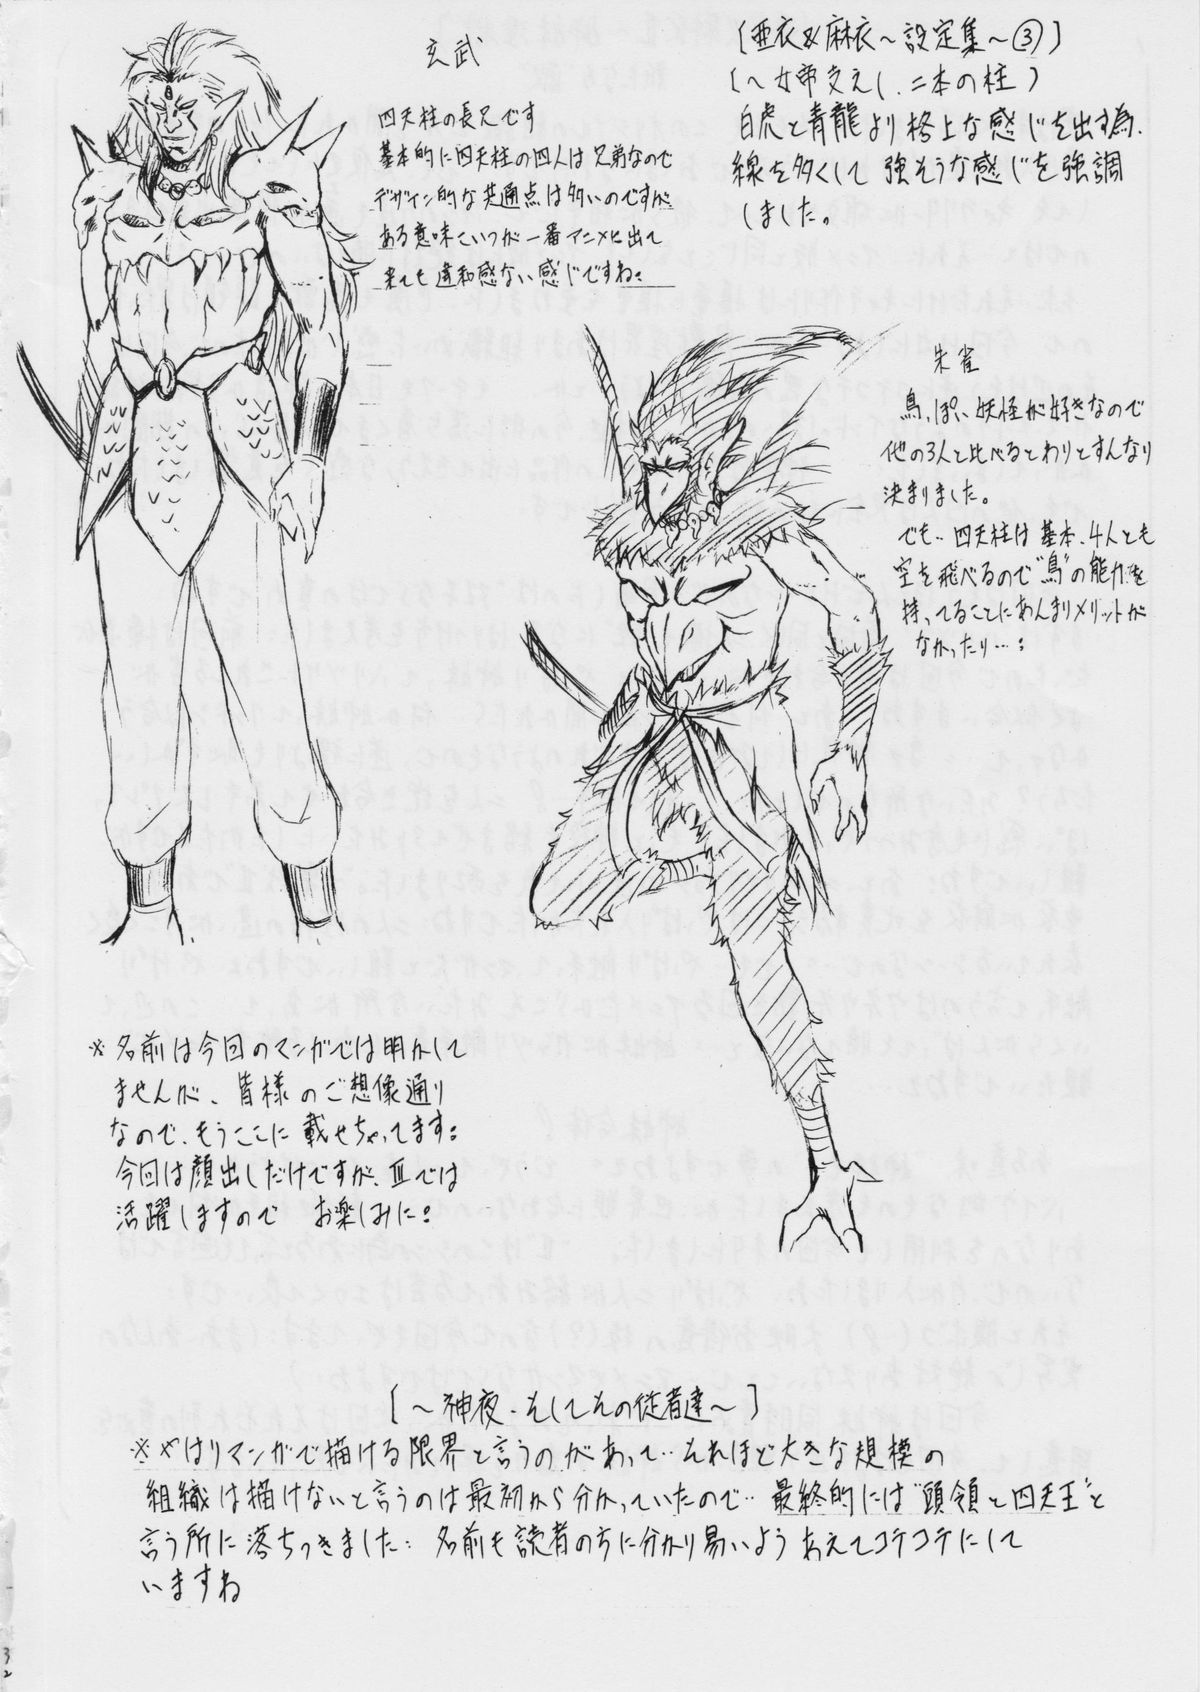 [亜衣&麻衣～設定集～③]
白虎と青龍より格上な感じを出す為、
線を多くして 強そうな感じを強調
しました。
玄武
四天柱の長兄です
基本的に四天柱の四人は兄弟なので
デザイン的な共通点は多いのですが
ある意味こいつが一番アニメに出て
来ても違和感ない感じですね:
朱雀
鳥っぽい妖怪が好きなので
他の3人と比べるとわりとすんなり
決まりました。
でも‥四天柱は基本、4人とも
空を飛べるので“鳥”の能力を
持ってることにあんまりメリットが
なかったり…:
※名前は今回のマンガでは明かして
ませんが、皆様のご想像通り
なので、もうここに載せちゃってます:
今回は顔出しだけですが、Ⅲでは
活躍しますので お楽しみに:
[～神夜・そしてその従者達～]
※やはりマンガで描ける限界と言うのがあって‥それほど大きな規模の
組織は描けないと言うのは最初から分かっていたので‥最終的には“頭領と四天王”と
言う所に落ちつきました: 名前も読者の方に分かり易いようあえてコテコテにして
いますね
32